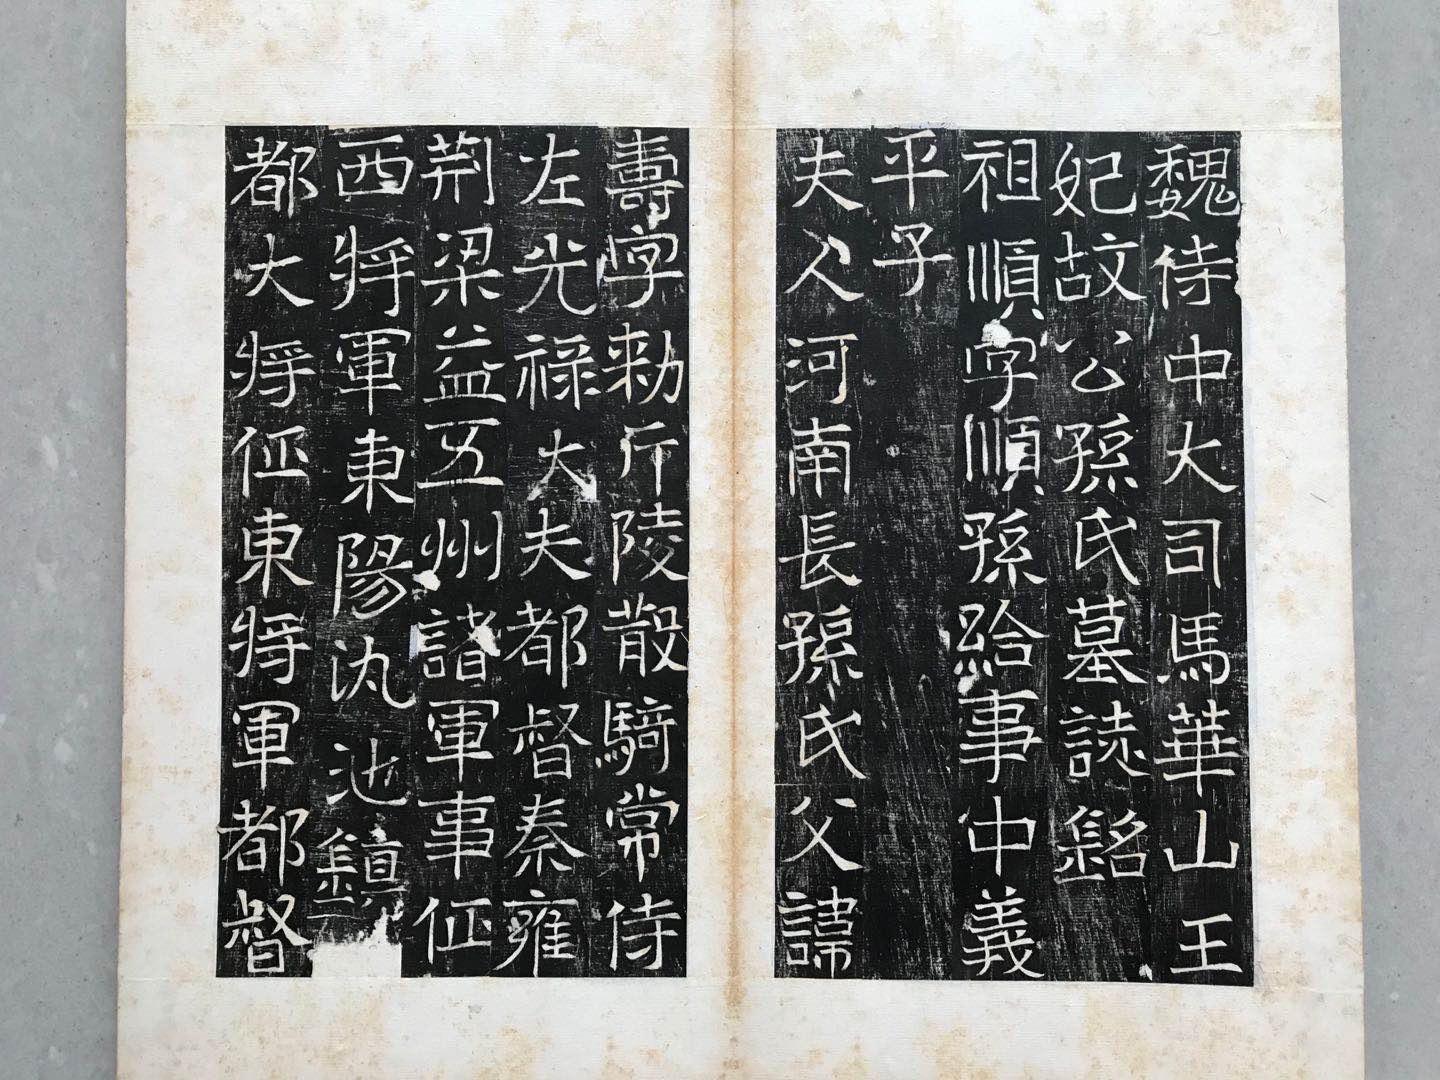 魏侍中大司馬華山王
妃故公孫氏墓誌銘
祖順字順孫給事中義
平子
夫人河南長孫氏父諱
壽字勑斤陵散騎常侍
左光祿大夫都督秦雍
荊梁益五州諸軍事征
西将軍東陽氿池鎮
都大将征東将軍都督